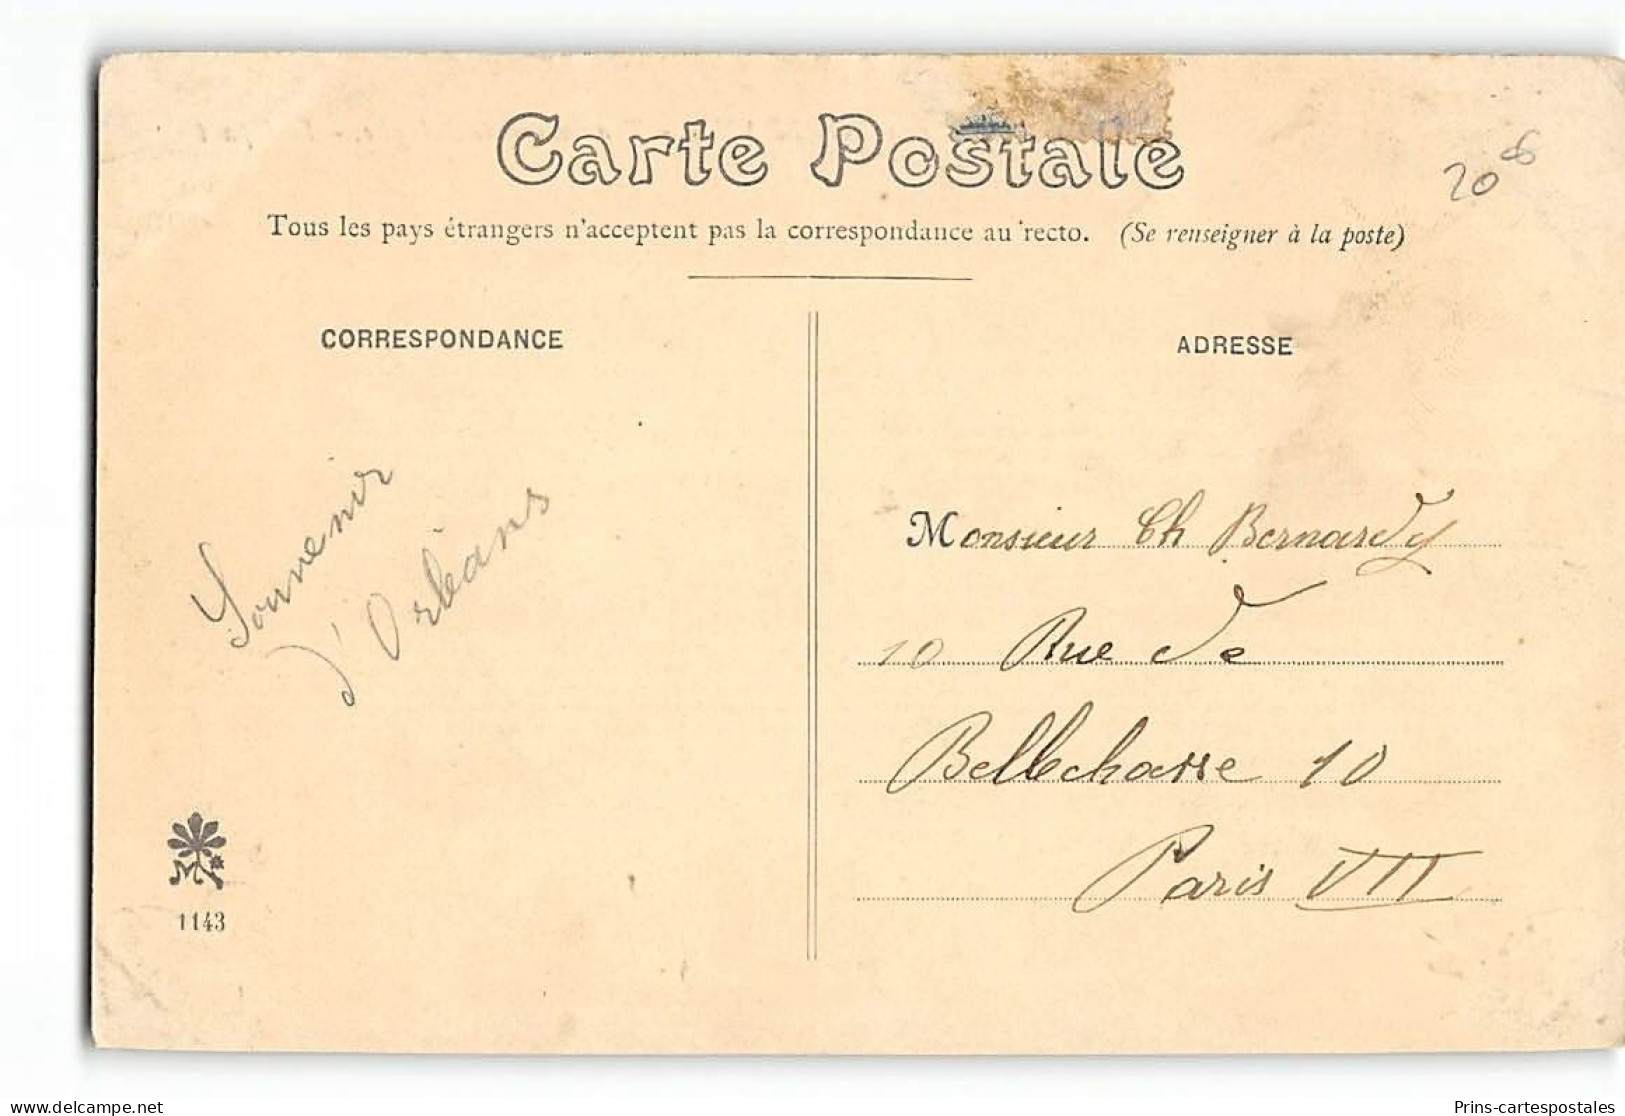 Carte Postale
Tous les pays étrangers n'acceptent pas la correspondance au recto. (Se renseigner à la poste)
CORRESPONDANCE
Souvenir
d'Orléans
M
1143
ADRESSE
Monsieur Ch Bernardy
10 Rue de
Bellechasse 10
Paris VII
Prins-cartespostales